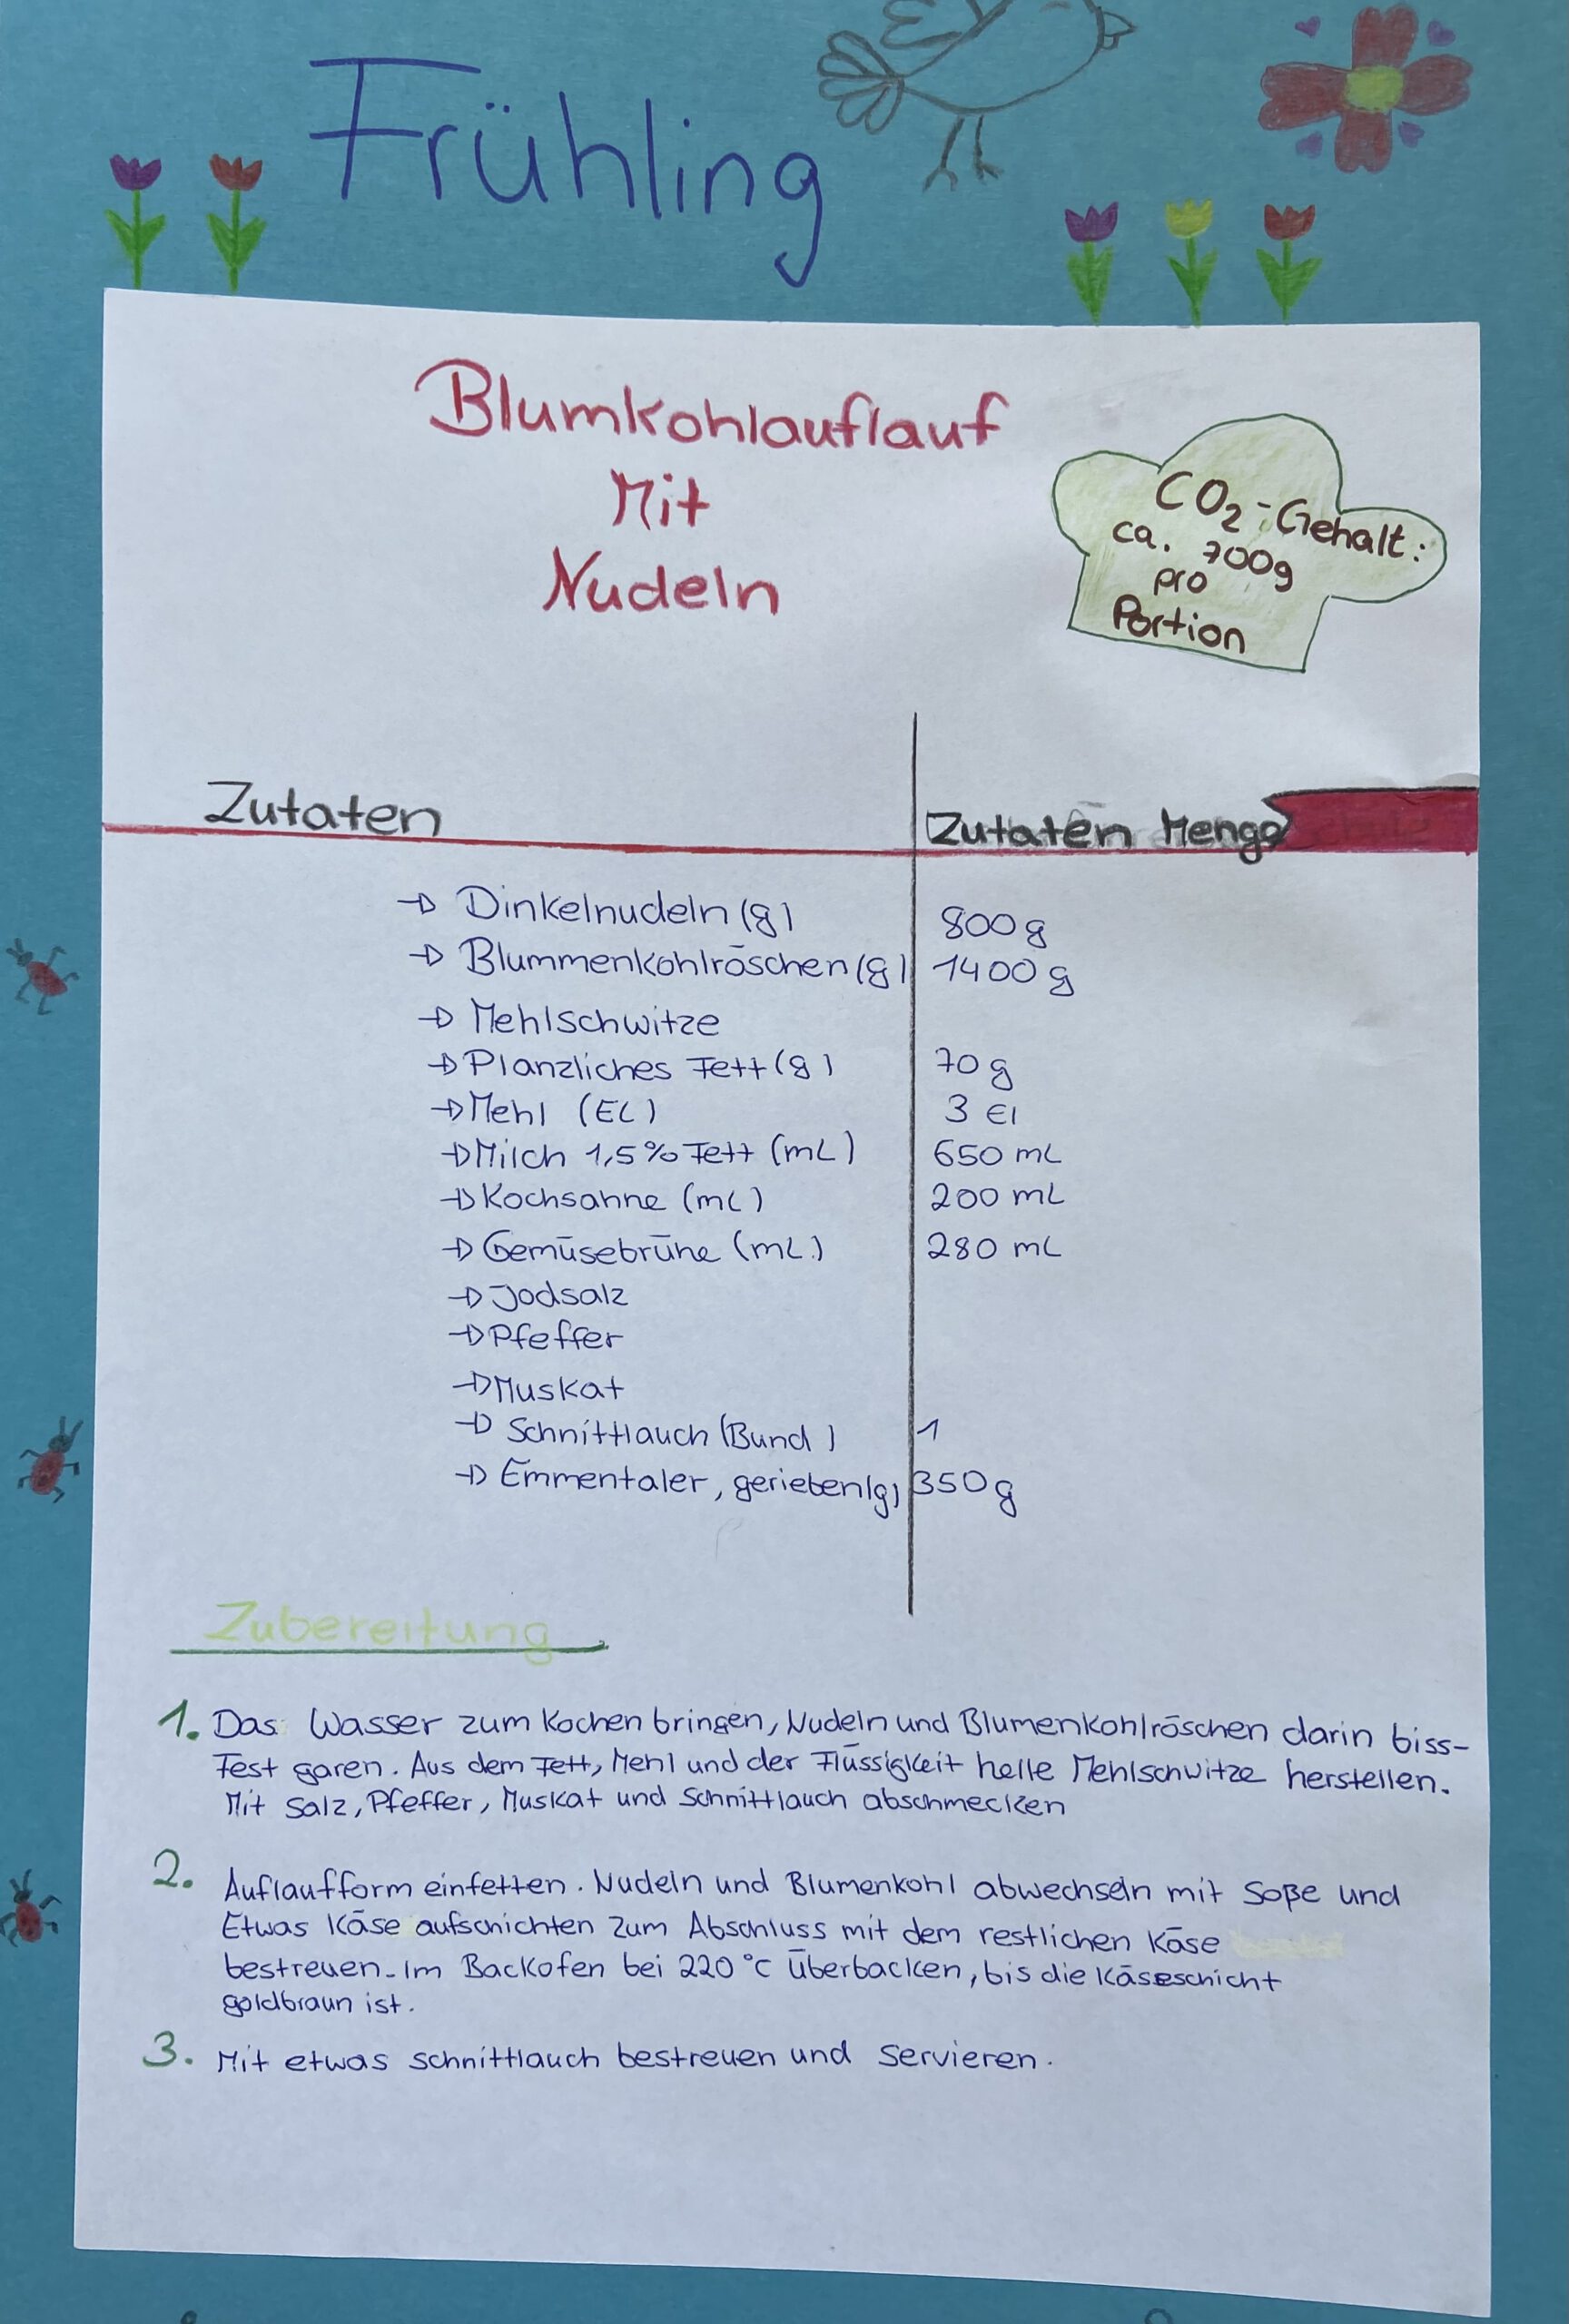 Frühling
Blumkohlauflauf
Mit
Nudeln
CO₂-Gehalt:
ca. 700g
pro
Portion
Zutaten
Zutaten Menge
→ Dinkelnudeln (g) 800 g
→ Blummenkohlröschen (g) 1400 g
→ Mehlschwitze
→ Planzliches Fett (g) 70 g
→ Mehl (EL) 3 El
→ Milch 1,5% Fett (mL) 650 mL
→ Kochsahne (mL) 200 mL
→ Gemüsebrühe (mL) 280 mL
→ Jodsalz
→ Pfeffer
→ Muskat
→ Schnittlauch (Bund) 1
→ Emmentaler, gerieben (g) 350 g
Zubereitung
1. Das Wasser zum Kochen bringen, Nudeln und Blumenkohlröschen darin biss-
Fest garen. Aus dem Fett, Mehl und der Flüssigkeit helle Mehlschwitze herstellen.
Mit Salz, Pfeffer, Muskat und Schnittlauch abschmecken
2. Auflaufform einfetten. Nudeln und Blumenkohl abwechseln mit Soße und
Etwas Käse aufschichten Zum Abschluss mit dem restlichen Käse
bestreuen. Im Backofen bei 220 °C überbacken, bis die Käseschicht
goldbraun ist.
3. Mit etwas schnittlauch bestreuen und servieren.